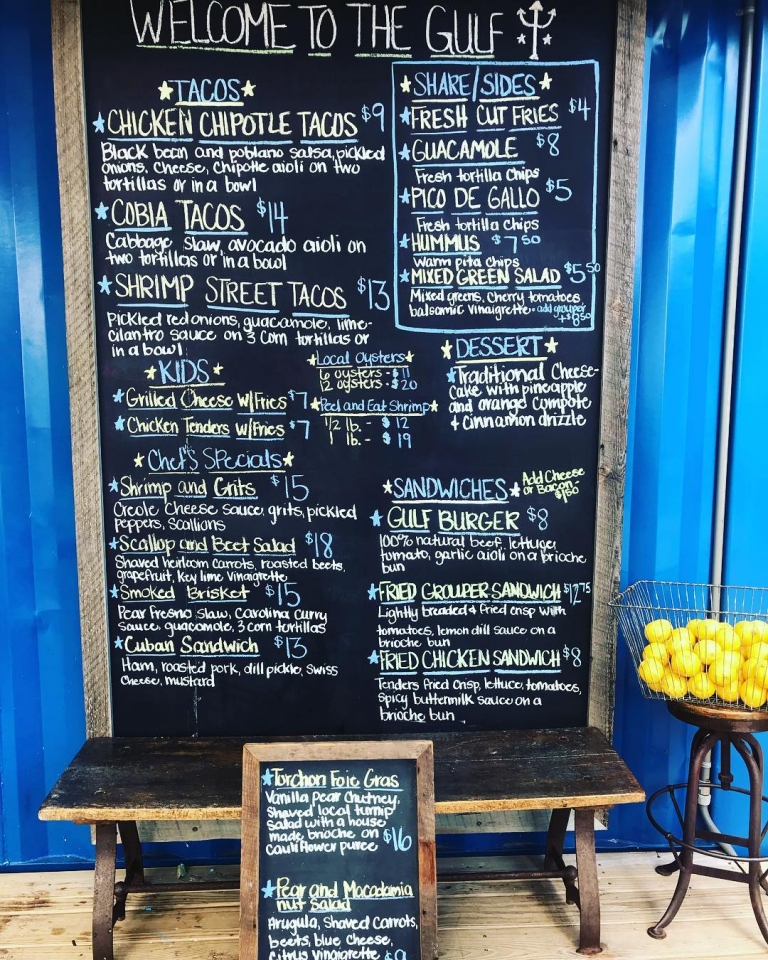 WELCOME TO THE GULF
TACOS
CHICKEN CHIPOTLE TACOS $9
Black bean and poblano salsa, pickled
onions, cheese, chipotle aioli on two
tortillas or in a bowl
COBIA TACOS $14
Cabbage slaw, avocado aioli on
two tortillas or in a bowl
SHRIMP STREET TACOS $13
Pickled red onions, guacamole, lime-
cilantro sauce on 3 corn tortillas or
in a bowl
SHARE/SIDES
FRESH CUT FRIES $4
GUACAMOLE $8
Fresh tortilla chips
PICO DE GALLO $5
Fresh tortilla chips
HUMMUS $7.50
Warm pita chips
MIXED GREEN SALAD $5.50
Mixed greens, cherry tomatoes
balsamic vinaigrette - add grouper
KIDS
Grilled Cheese w/Fries $7
Chicken Tenders w/Fries $7
Local Oysters
6 oysters - $11
12 oysters - $20
Peel and Eat Shrimp
1/2 lb. - $12
1 lb. - $19
DESSERT
Traditional Cheese-
cake with pineapple
and orange compote
+ cinnamon drizzle
Chef's Specials
Shrimp and Grits $15
Creole cheese sauce, grits, pickled
peppers, scallions
Scallop and Beet Salad $18
Shaved heirloom carrots, roasted beets,
grapefruit, key lime vinaigrette
Smoked Brisket $15
Pear fresno slaw, Carolina curry
sauce, guacamole, 3 corn tortillas
Cuban Sandwich $13
Ham, roasted pork, dill pickle, swiss
cheese, mustard
SANDWICHES
Add Cheese
or Bacon -
$1.50
GULF BURGER $8
100% natural beef, lettuce,
tomato, garlic aioli on a brioche
bun
FRIED GROUPER SANDWICH $12.75
Lightly breaded & fried crisp with
tomatoes, lemon dill sauce on a
brioche bun
FRIED CHICKEN SANDWICH $8
Tenders fried crisp, lettuce, tomatoes,
spicy buttermilk sauce on a
brioche bun
Torchon Foie Gras
Vanilla pear chutney,
shaved local turnip
salad with a house
made brioche on
cauliflower puree $16
Pear and Macadamia
nut Salad
Arugula, shaved carrots,
beets, blue cheese,
citrus vinaigrette $9